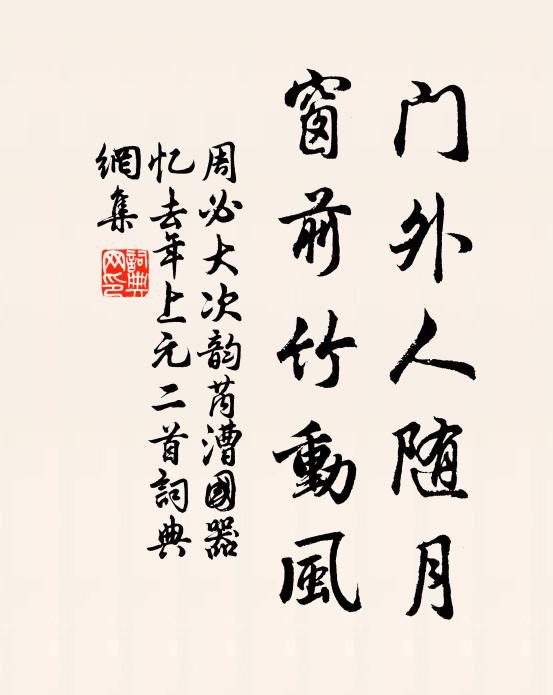 门外人随月
窗前竹動風
周必大次韵芮漕國器
忆去年上元二首詞典
網集
詞典
网印